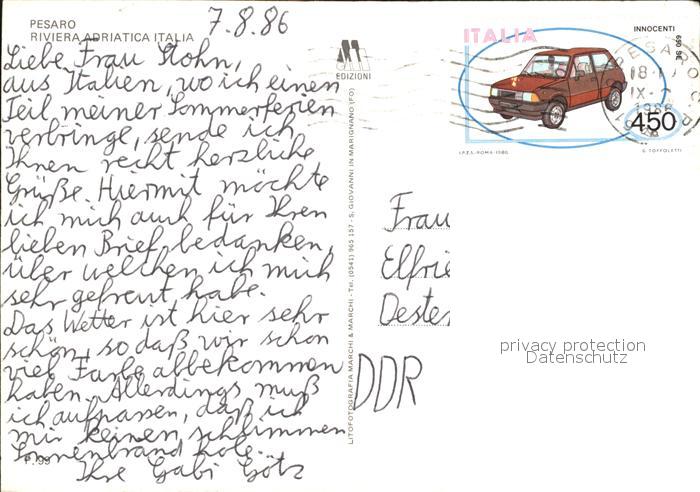 PESARO
RIVIERA ADRIATICA ITALIA
7.8.86
Liebe Frau Stohn,
aus Italien, wo ich einen
Teil meiner Sommerferien
verbringe, sende ich
Ihnen recht herzliche
Grüße. Hiermit möchte
ich mich auch für Ihren
lieben Brief bedanken,
über welchen ich mich
sehr gefreut habe.
Das Wetter ist hier sehr
schön, so daß wir schon
viel Farbe abbekommen
haben. Allerdings muß
ich aufpassen, daß ich
mir keinen schlimmen
Sonnenbrand hole.
Ihre Gabi Götz
P. 99
EDIZIONI
LITOFOTOGRAFIA MARCHI & MARCHI - Tel. (0541) 965 157 - S. GIOVANNI IN MARIGNANO (FO)
ITALIA
INNOCENTI
650 SE
450
I.P.Z.S.-ROMA-1986
G. TOFFOLETTI
PESARO
1986
Frau
Elfrie
Oester
DDR
privacy protection
Datenschutz